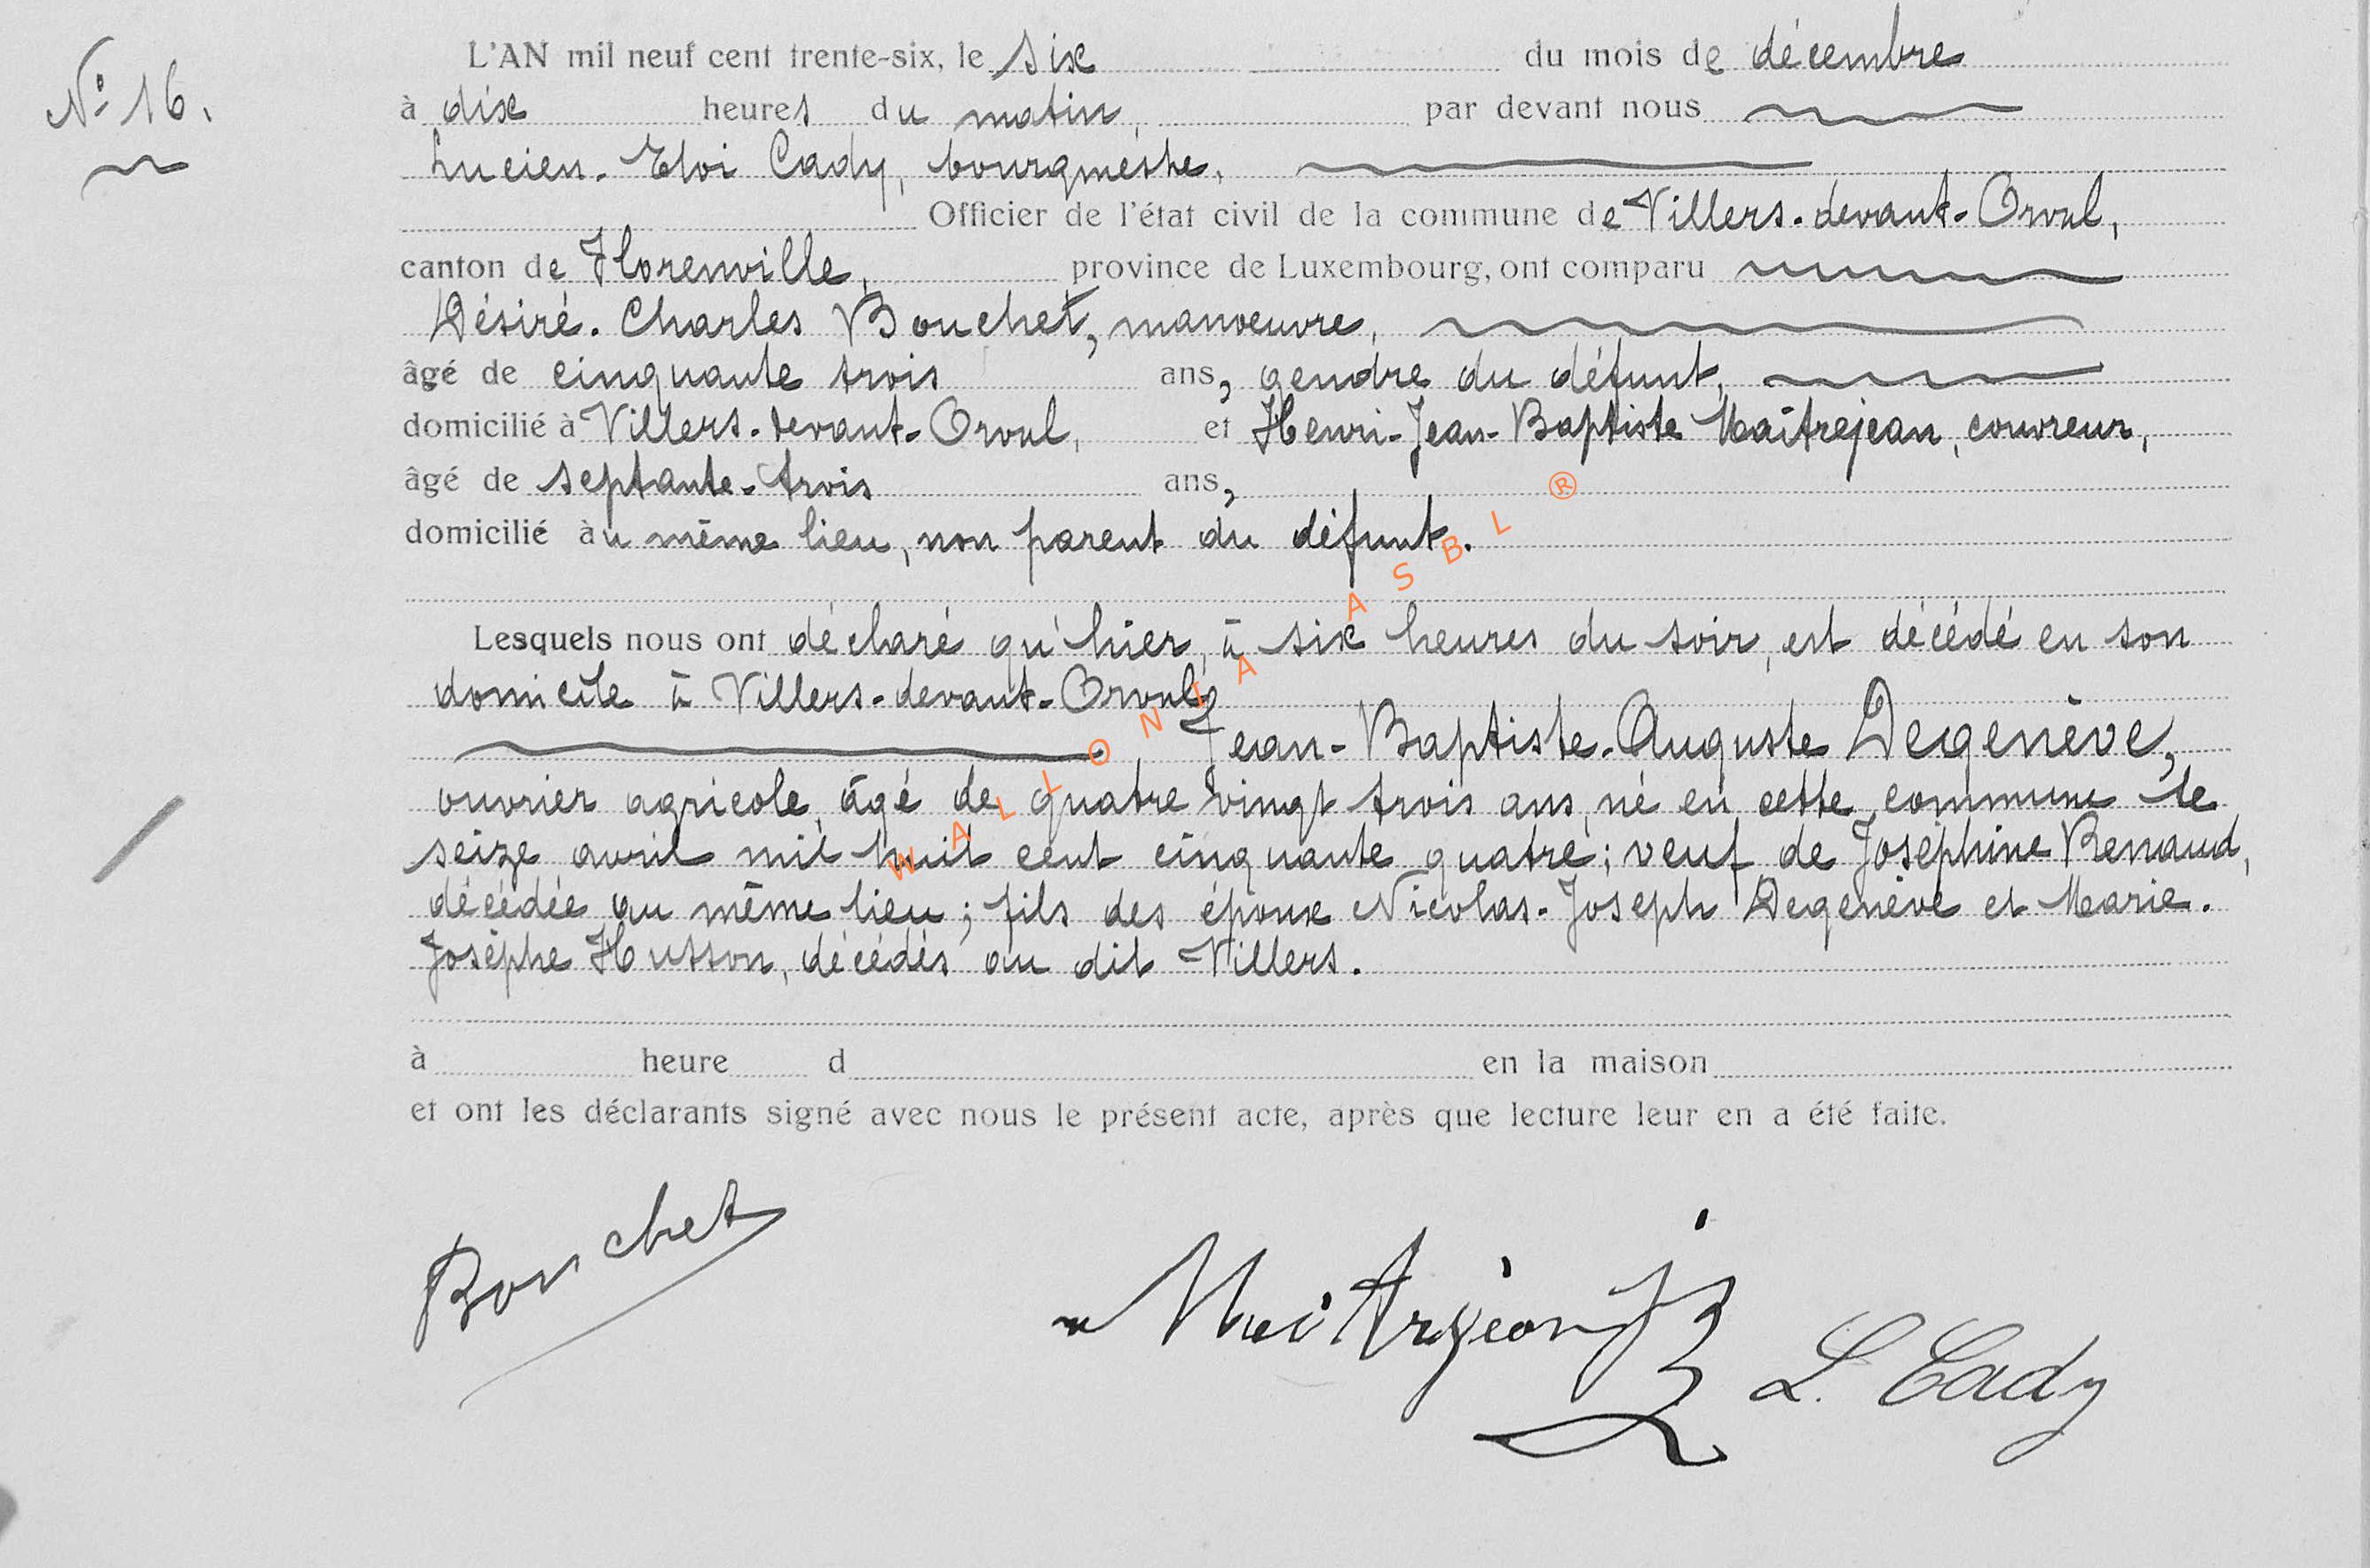 L'AN mil neuf cent trente-six, le six du mois de décembre
N° 16. à dix heures du matin, par devant nous
Lucien-Eloi Cady, bourgmestre,
Officier de l'état civil de la commune de Villers-devant-Orval,
canton de Florenville, province de Luxembourg, ont comparu
Désiré-Charles Bouchet, manoeuvre,
âgé de cinquante trois ans, gendre du défunt,
domicilié à Villers-devant-Orval, et Henri-Jean-Baptiste Maîtrejean, couvreur,
âgé de septante-trois ans,
domicilié au même lieu, non parent du défunt.
Lesquels nous ont déclaré qu'hier, à six heures du soir, est décédé en son
domicile à Villers-devant-Orval,
Jean-Baptiste-Auguste Degenève,
ouvrier agricole, âgé de quatre vingt trois ans, né en cette commune le
seize avril mil huit cent cinquante quatre; veuf de Joséphine Renaud,
décédée au même lieu; fils des époux Nicolas-Joseph Degenève et Marie-
Josèphe Husson, décédés au dit Villers.
à heure d en la maison
et ont les déclarants signé avec nous le présent acte, après que lecture leur en a été faite.
Bouchet
Maitrejean
L. Cady
WALLONIA ASBL ®